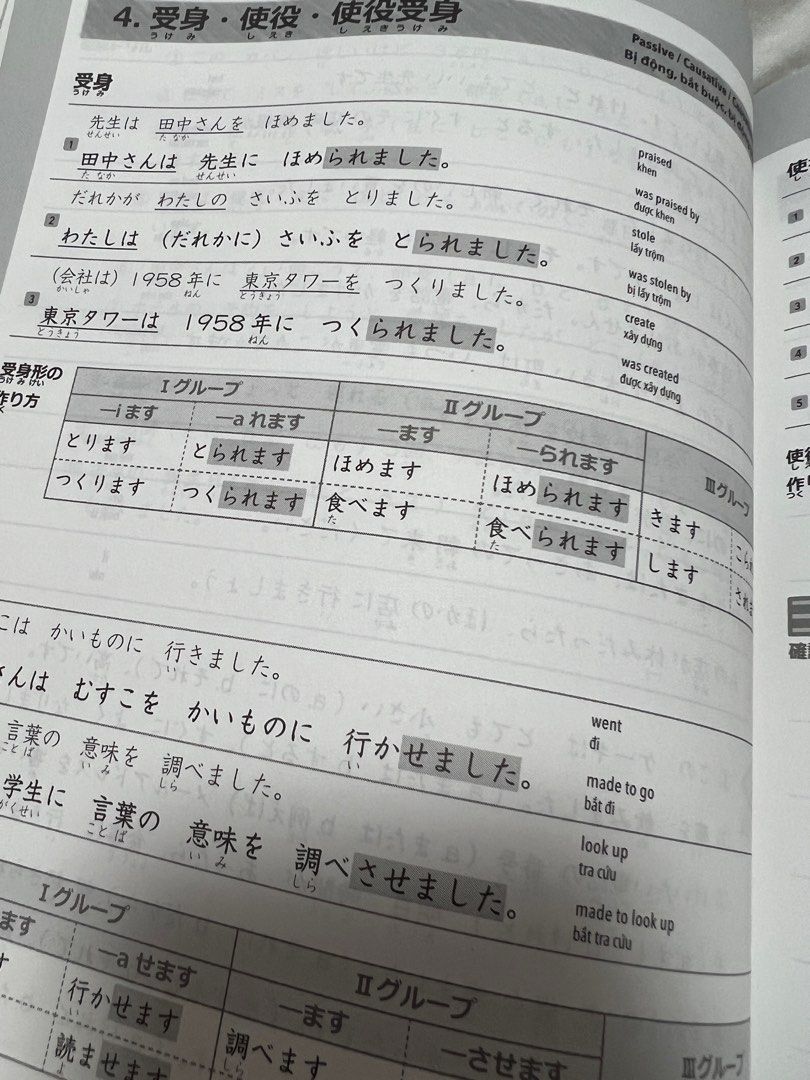 4. 受身・使役・使役受身
うけみ しえき しえきうけみ
Passive / Causative /
Bị động, bắt buộc, bị
受身
うけみ
先生は 田中さんを ほめました。
せんせい たなか
praised
khen
1 田中さんは 先生に ほめられました。
たなか せんせい
was praised by
được khen
だれかが わたしの さいふを とりました。
stole
lấy trộm
2 わたしは (だれかに) さいふを とられました。
was stolen by
bị lấy trộm
(会社は) 1958年に 東京タワーを つくりました。
かいしゃ ねん とうきょう
create
xây dựng
3 東京タワーは 1958年に つくられました。
とうきょう ねん
was created
được xây dựng
受身形の
うけみけい
作り方
く
Ⅰグループ Ⅱグループ Ⅲグループ
―iます ―aれます ―ます ―られます
とります とられます ほめます ほめられます きます こら
つくります つくられます 食べます 食べられます します され
た た
こは かいものに 行きました。
い
went
đi
さんは むすこを かいものに 行かせました。
い
made to go
bắt đi
言葉の 意味を 調べました。
ことば いみ しら
look up
tra cứu
学生に 言葉の 意味を 調べさせました。
がくせい ことば いみ しら
made to look up
bắt tra cứu
Ⅰグループ Ⅱグループ Ⅲグループ
ます ―aせます ―ます ―させます
す 行かせます 調べます
い しら
読ませます
よ
使
し
1
2
3
4
5
使役
し
作り
つく
確